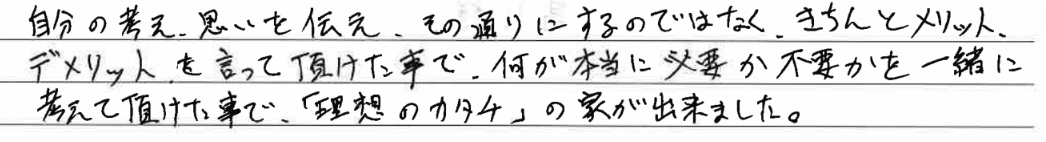 自分の考え、思いを伝え、その通りにするのではなく、きちんとメリット、
デメリットを言って頂けた事で、何が本当に必要か不要かを一緒に
考えて頂けた事で、「理想のカタチ」の家が出来ました。